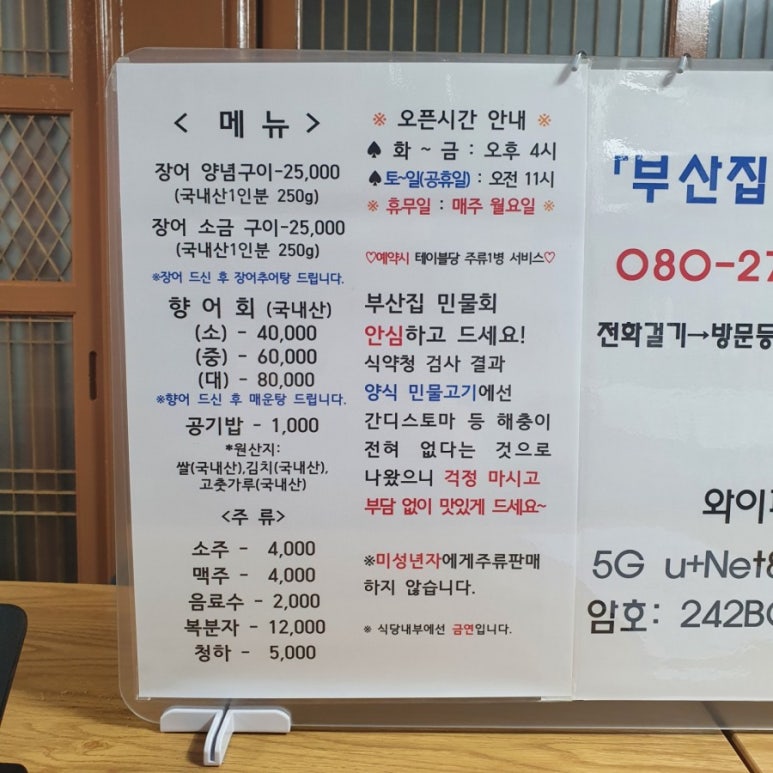 < 메 뉴 >
장어 양념구이-25,000
(국내산1인분 250g)
장어 소금 구이-25,000
(국내산1인분 250g)
※장어 드신 후 장어추어탕 드립니다.
향 어 회 (국내산)
(소) - 40,000
(중) - 60,000
(대) - 80,000
※향어 드신 후 매운탕 드립니다.
공기밥 - 1,000
*원산지:
쌀(국내산),김치(국내산),
고춧가루(국내산)
<주 류>
소주 - 4,000
맥주 - 4,000
음료수 - 2,000
복분자 - 12,000
청하 - 5,000
※ 오픈시간 안내 ※
♠ 화 ~ 금 : 오후 4시
♠토~일(공휴일) : 오전 11시
※ 휴무일 : 매주 월요일 ※
♡예약시 테이블당 주류1병 서비스♡
부산집 민물회
안심하고 드세요!
식약청 검사 결과
양식 민물고기에선
간디스토마 등 해충이
전혀 없다는 것으로
나왔으니 걱정 마시고
부담 없이 맛있게 드세요~
※미성년자에게주류판매
하지 않습니다.
※ 식당내부에선 금연입니다.
「부산집
080-27
전화걸기→방문등
와이
5G u+Net
암호: 242B